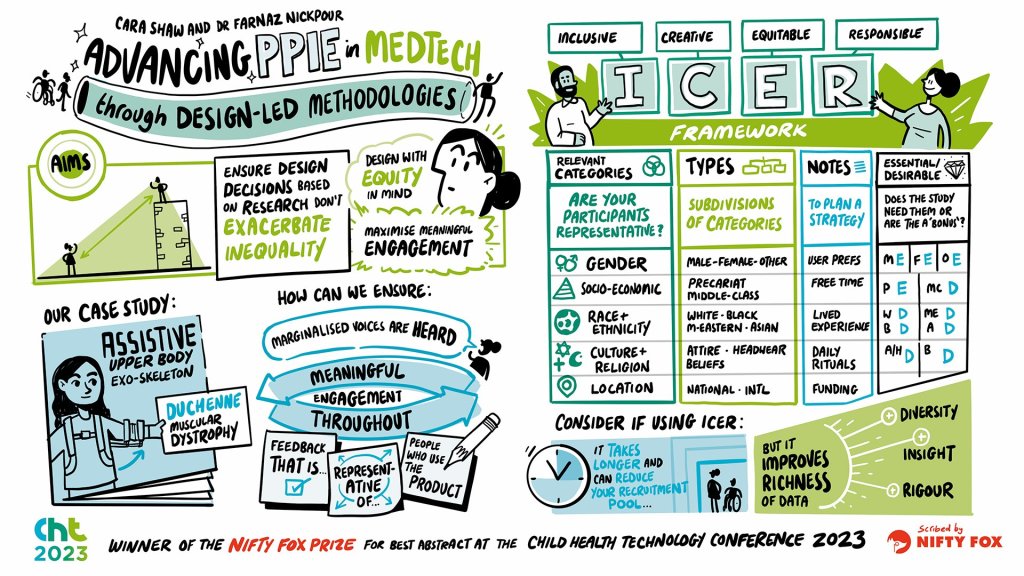 CARA SHAW AND DR FARNAZ NICKPOUR
ADVANCING PPIE in MEDTECH
through DESIGN-LED METHODOLOGIES
AIMS
ENSURE DESIGN
DECISIONS BASED
ON RESEARCH DON'T
EXACERBATE
INEQUALITY
DESIGN WITH
EQUITY
IN MIND
MAXIMISE MEANINGFUL
ENGAGEMENT
OUR CASE STUDY:
ASSISTIVE
UPPER BODY
EXO-SKELETON
DUCHENNE
MUSCULAR
DYSTROPHY
HOW CAN WE ENSURE:
MARGINALISED VOICES ARE HEARD
MEANINGFUL
ENGAGEMENT
THROUGHOUT
FEEDBACK
THAT IS...
REPRESENT-
ATIVE
OF...
PEOPLE
WHO USE
THE
PRODUCT
INCLUSIVE
CREATIVE
EQUITABLE
RESPONSIBLE
I C E R
FRAMEWORK
RELEVANT
CATEGORIES
TYPES
NOTES
ESSENTIAL/
DESIRABLE
ARE YOUR
PARTICIPANTS
REPRESENTATIVE?
SUBDIVISIONS
OF CATEGORIES
TO PLAN A
STRATEGY
DOES THE STUDY
NEED THEM OR
ARE THE A 'BONUS'?
GENDER
MALE-FEMALE-OTHER
USER PREFS
M E F E O E
SOCIO-ECONOMIC
PRECARIAT
MIDDLE-CLASS
FREE TIME
P E MC D
RACE+
ETHNICITY
WHITE · BLACK
M-EASTERN · ASIAN
LIVED
EXPERIENCE
W D ME D
B D A D
CULTURE+
RELIGION
ATTIRE · HEADWEAR
BELIEFS
DAILY
RITUALS
A/H D B D
LOCATION
NATIONAL · INTL
FUNDING
CONSIDER IF USING ICER:
IT TAKES
LONGER AND
CAN REDUCE
YOUR RECRUITMENT
POOL...
BUT IT
IMPROVES
RICHNESS
OF DATA
DIVERSITY
INSIGHT
RIGOUR
cht
2023
WINNER OF THE NIFTY FOX PRIZE FOR BEST ABSTRACT AT THE CHILD HEALTH TECHNOLOGY CONFERENCE 2023
Scribed by
NIFTY FOX